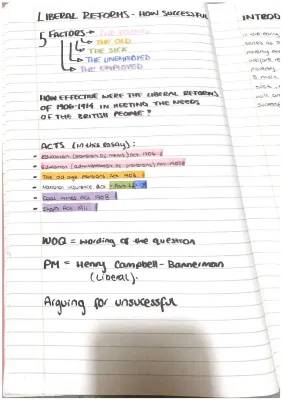 LIBERAL REFORMS - HOW SUCCESSFUL
5 FACTORS → THE YOUNG
THE OLD
THE SICK
THE UNEMPLOYED
THE EMPLOYED
HOW EFFECTIVE WERE THE LIBERAL REFORMS
OF 1906-1914 IN MEETING THE NEEDS
OF THE BRITISH PEOPLE?
ACTS (in this essay):
- Education (provision of meals) Act 1906
- Education (administrative provisions) Act 1907
- The old age pensions Act 1908
- National insurance Act - Part 1 &
- Coal mines Act 1908
- Shops Act 1911
WOQ = wording of the question
PM = Henry Campbell-Bannerman
(Liberal).
Arguing for unsucessful
INTROD